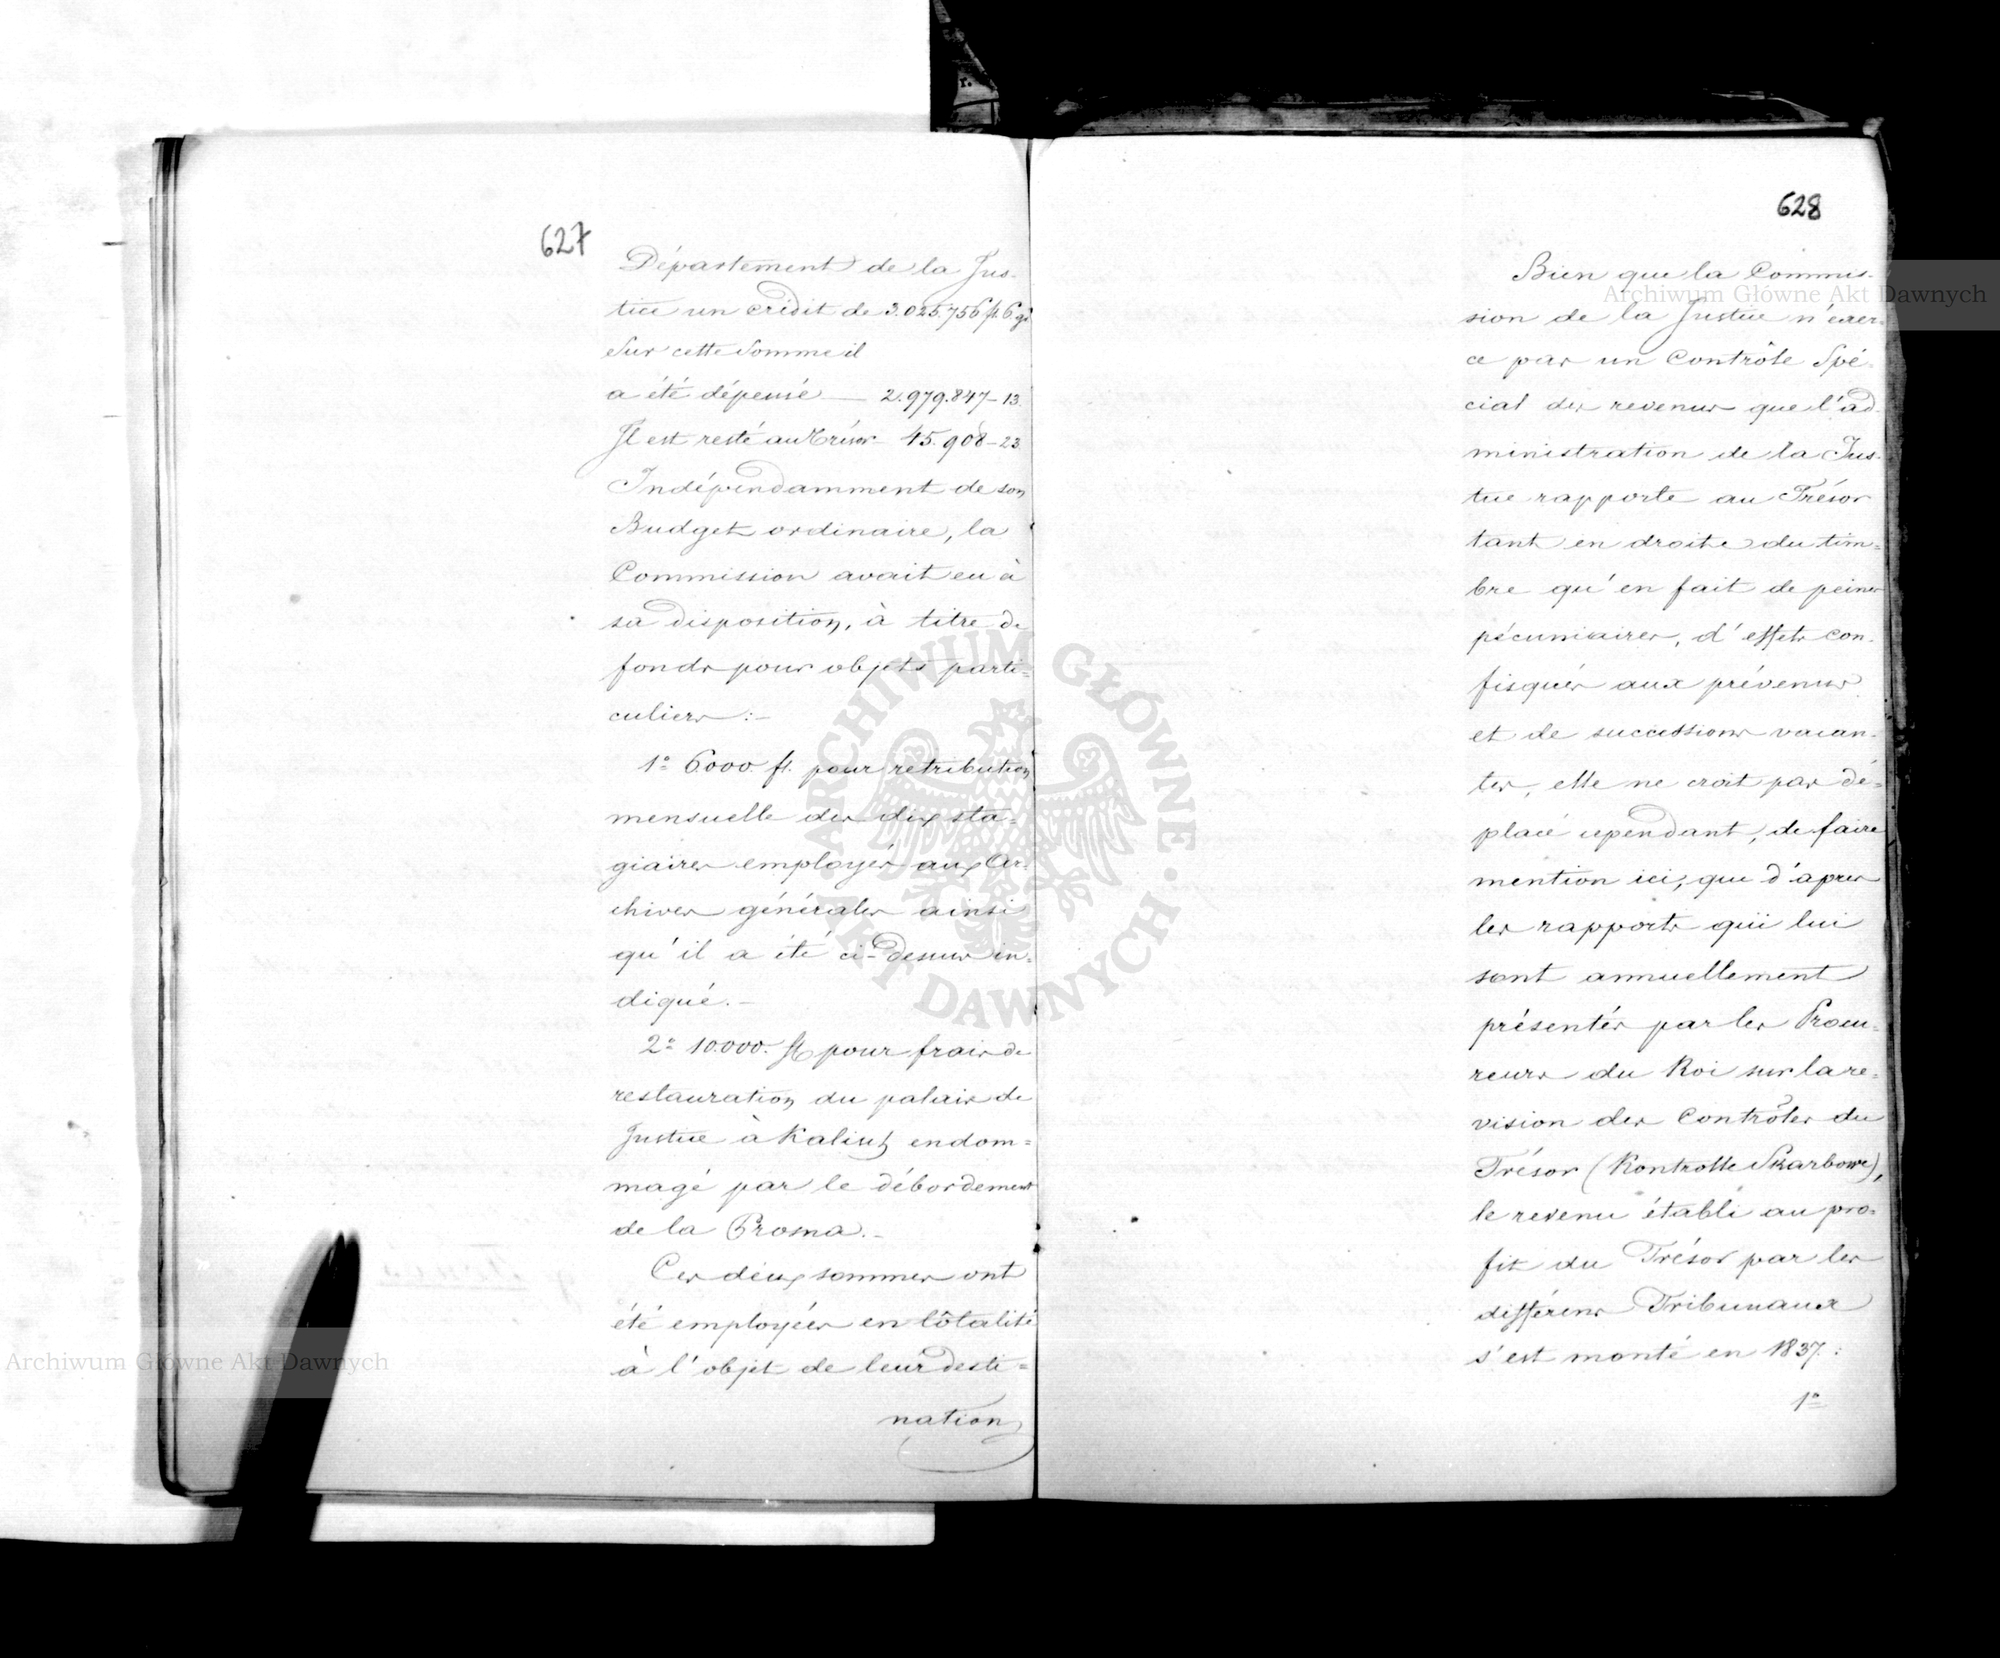 627
Département de la Jus-
tice un crédit de 3.025.756 fl. 6 g.
Sur cette Somme il
a été dépensé — 2.979.847–13.
Il est resté au Trésor – 45.908–23.
Indépendamment de son
Budget ordinaire, la
Commission avait eu à
sa disposition, à titre de
fonds pour objets parti-
culiers :–
1º 6000. fl. pour retribution
mensuelle des dix sta-
giaires employés aux Ar-
chives générales ainsi
qu'il a été ci-dessus in-
diqué.–
2º 10.000. fl pour frais de
restauration du palais de
Justice à Kalisz endom=
magé par le débordement
de la Prosna.–
Ces deux sommes ont
été employées en tôtalité
à l'objet de leur desti=
nation
628
Bien que la Commis-
sion de la Justice n'éxer-
ce pas un Contrôle Spé-
cial des revenus que l'ad-
ministration de la Jus-
tice rapporte au Trésor
tant en droits du tim=
bre qu'en fait de peines
pécuniaires, d'effets con-
fisqués aux prévenus
et de successions vacan-
tes, elle ne croit pas dé=
placé cependant, de faire
mention ici, que d'après
les rapports qui lui
sont annuellement
présentés par les Procu-
reurs du Roi sur la re-
vision des Contrôles du
Trésor (Kontrolle Skarbowe),
le revenu établi au pro=
fit du Trésor par les
différens Tribunaux
s'est monté en 1837. :
1º
Archiwum Główne Akt Dawnych
Archiwum Główne Akt Dawnych
ARCHIWUM GŁÓWNE · AKT DAWNYCH ·